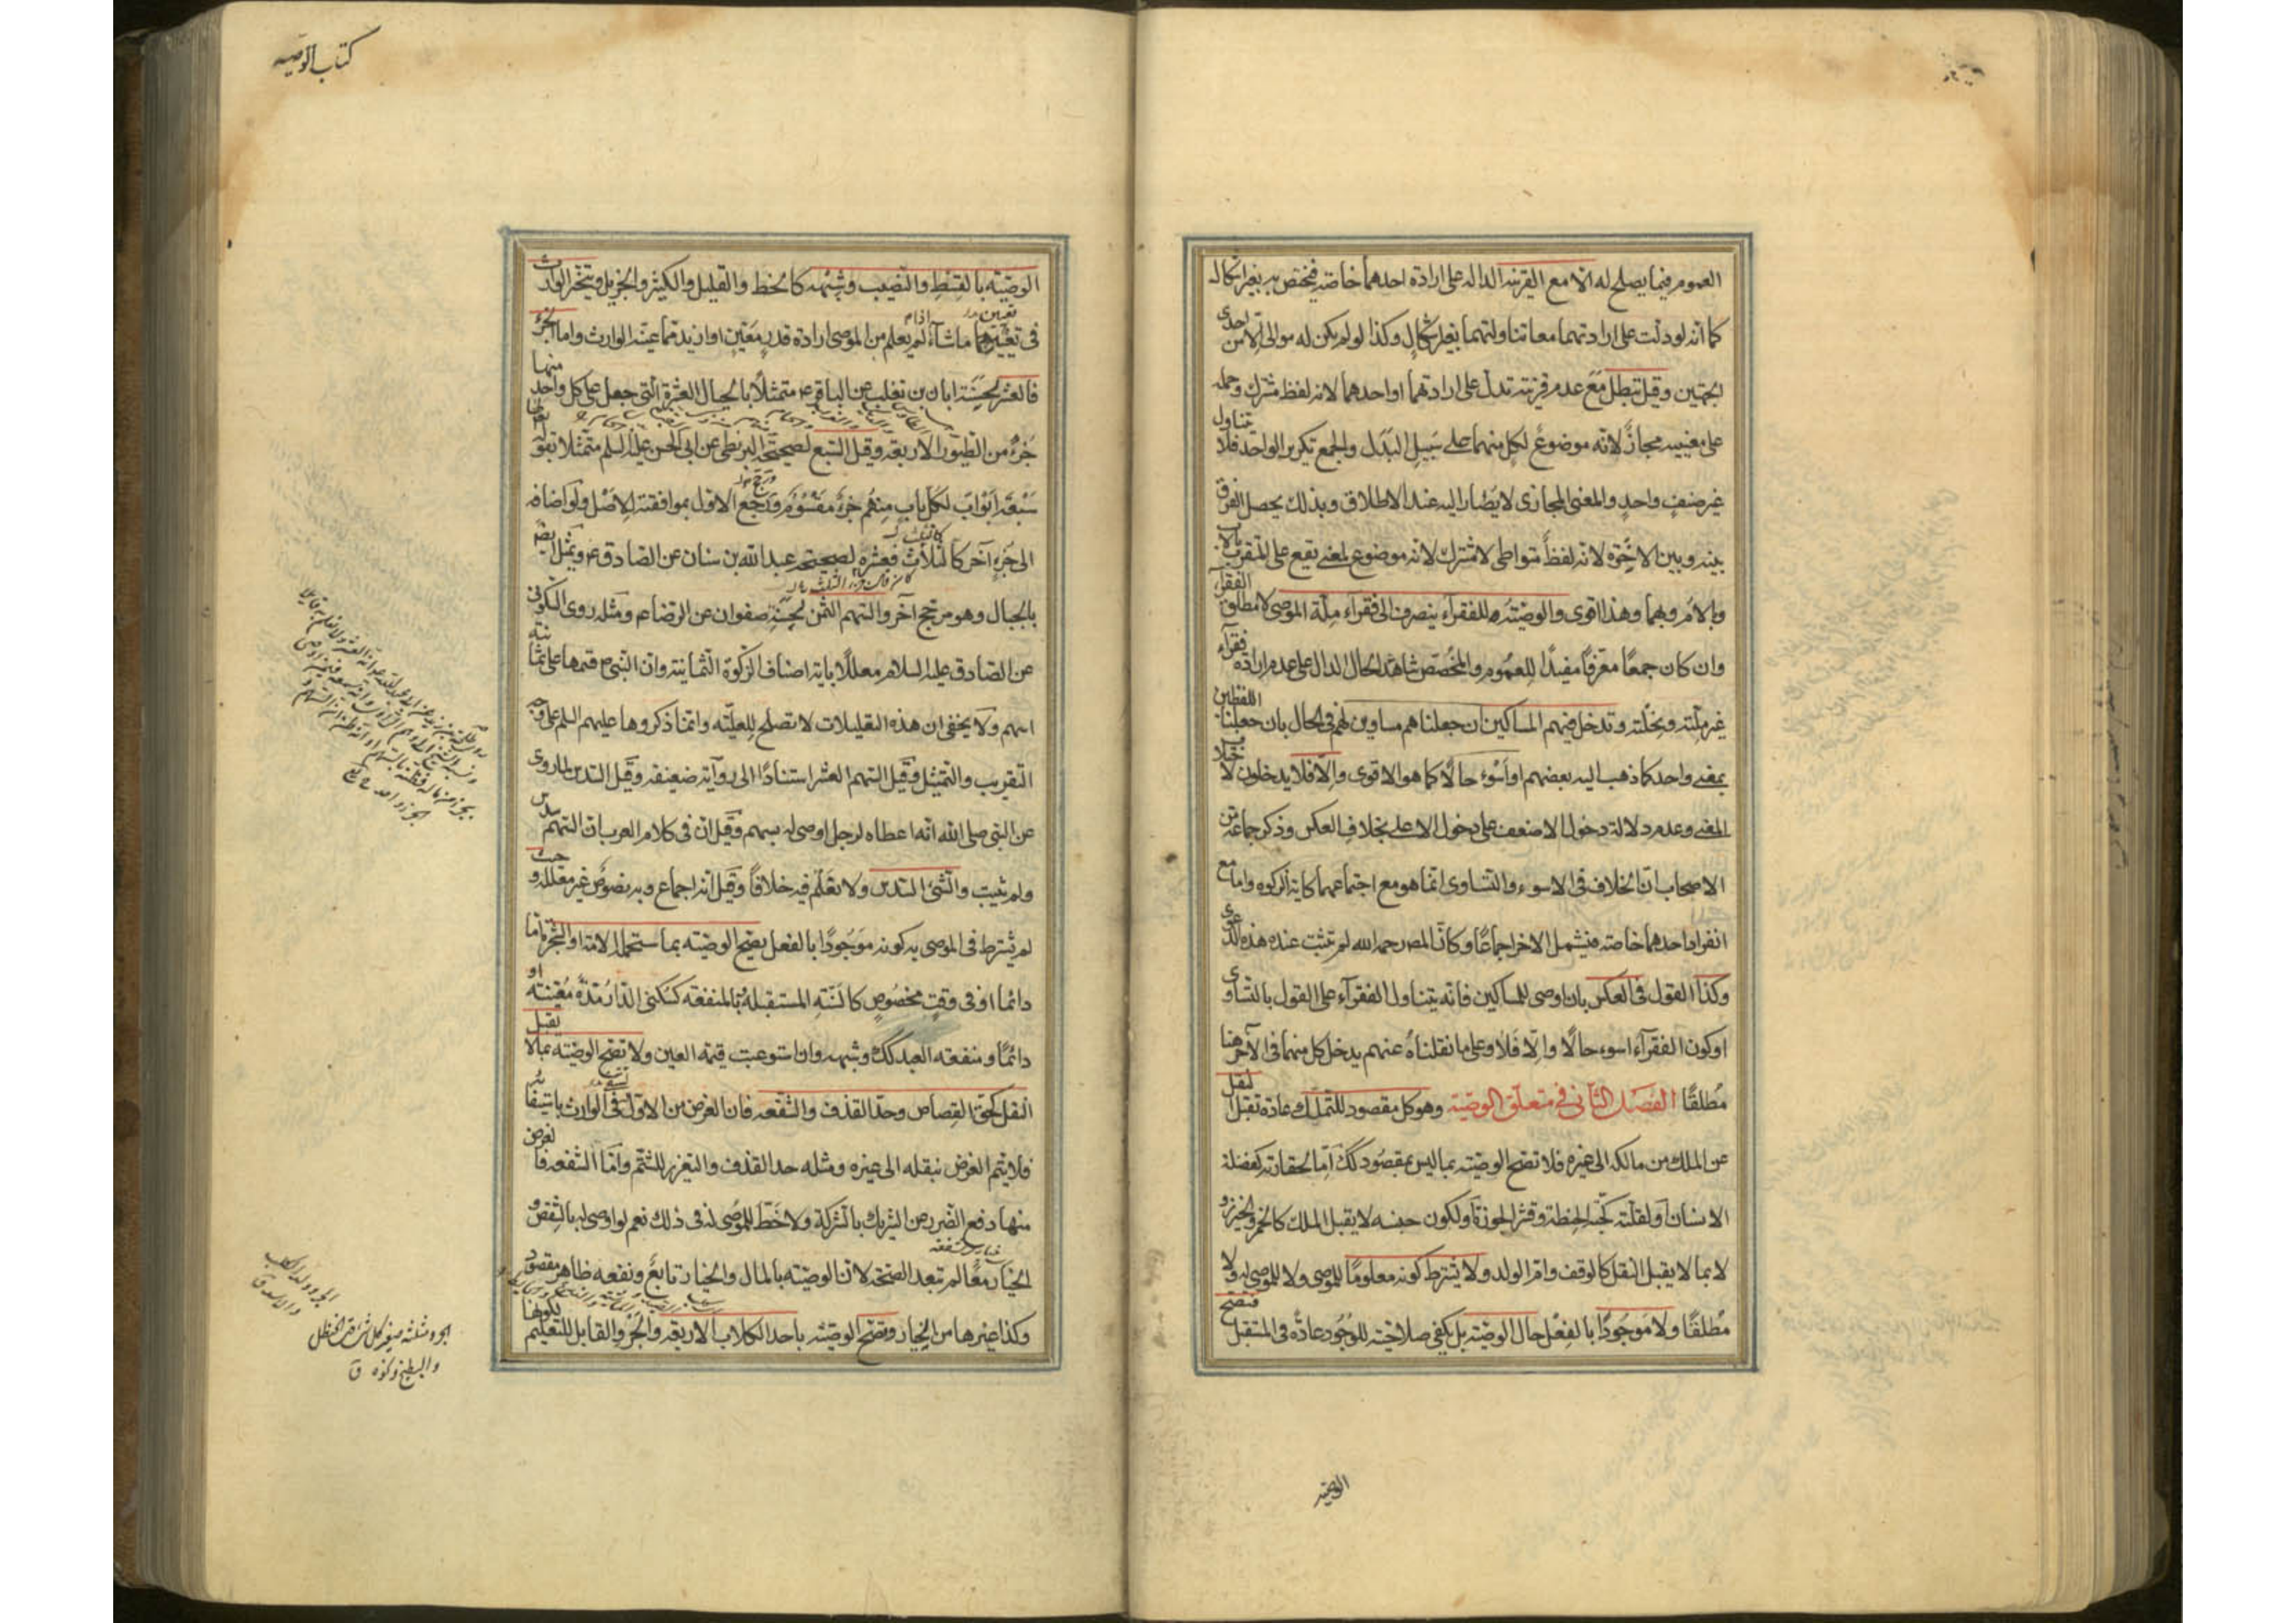 العموم فيما يصلح له الا مع القرينه الداله على ارادة احدهما خاصه فيختص به بغير اشكال
كما انه لو دلت على ارادتهما معا تناولتهما بغير اشكال وكذا لو لم يكن له موالى الا من احدى
الجهتين وقيل تبطل مع عدم قرينه تدل على ارادتهما او احدهما لانه لفظ مشترك وحمله
على معنييه مجاز لانه موضوع لكل منهما على سبيل البدل والجمع تكرير الواحد فلا يتناول
غير صنف واحد والمعنى المجازى لا يصار اليه عند الاطلاق وبذلك يحصل الفرق
بينه وبين الاخوة لانه لفظ متواطى لا مشترك لانه موضوع لمعنى يقع على المتقرب بالاب
وبالام وبهما وهذا اقوى والوصيته للفقراء ينصرف الى فقراء ملة الموصى لا مطلق الفقراء
وان كان جمعا معرفا مفيدا للعموم والمخصص شاهد الحال الدال على عدم ارادة فقراء
غير ملته ونحلته وتدخل فيهم المساكين ان جعلناهم مساوين لهم فى الحال بان جعلنا اللفظين
بمعنى واحد كما ذهب اليه بعضهم او اسوء حالا كما هو الاقوى والا فلا يدخلون لاختلاف
المعنى وعدم دلالة دخول الاضعف على دخول الاعلى بخلاف العكس وذكر جماعة من
الاصحاب ان الخلاف فى الاسوء والتساوى انما هو مع اجتماعهما كاية الزكوة واما مع
انفراد احدهما خاصه فيشمل الاخر اجماعا وكان المص رحمه الله لم تثبت عنده هذه الدعوى
وكذا القول فى العكس بان اوصى للمساكين فانه يتناول الفقراء على القول بالتساوى
او كون الفقراء اسوء حالا والا فلا وعلى ما نقلناه عنهم يدخل كل منهما فى الاخر هنا
مطلقا الفصل الثانى فى متعلق الوصيته وهو كل مقصود للتملك عادة تقبل النقل
عن الملك من مالكه الى غيره فلا تصح الوصيته بما ليس بمقصود كك اما لحقارته كفضلة
الانسان او لقلته كحبة الحنطة وقشر الجوزة او لكون جنسه لا يقبل الملك كالخمر والخنزير و
لا بما لا يقبل النقل كالوقف وام الولد ولا يشترط كونه معلوما للموصى ولا للموصى له ولا
مطلقا ولا موجودا بالفعل حال الوصيته بل يكفى صلاحيته للوجود عادة فى المستقبل فتصح
الوصيته
كتاب الوصيه
الوصيته بالقسط والنصيب وشبهه كالحظ والقليل والكثير والجزيل ويتخير الوارث
فى تعيينهما ما شاء لم يعلم من الموصى ارادة قدر معين او ازيد مما عينه الوارث واما الجزء
فالعشر لحسنة ابان بن تغلب عن الباقر ع متمثلا بالجبال العشرة التى جعل على كل واحد منها
جزء من الطيور الاربعه وقيل السبع لصحيحة البزنطى عن ابى الحسن عليه السلم متمثلا بقوله تعالى لها
سبعة ابواب لكل باب منهم جزء مقسوم ورجح الاول بموافقته الاصل ولو اضافه
الى جزء آخر كالثلث فعشره لصحيحة عبد الله بن سنان عن الصادق ع وتمثل ايضا
بالجبال وهو مرجح آخر والسهم الثمن لحسنه صفوان عن الرضا ع ومثله روى السكونى
عن الصادق عليه السلام معللا باية اصناف الزكوة الثمانيه وان النبى ص قسمها على ثمانية
اسهم ولا يخفى ان هذه التعليلات لا تصلح للعليته وانما ذكروها عليهم السلم على وجه
التقريب والتمثيل وقيل السهم العشر استنادا الى رواية ضعيفه وقيل السدس لما روى
عن النبى صلى الله انه اعطاه لرجل اوصى له بسهم وقيل ان فى كلام العرب ان السهم سدس
ولم يثبت والشئ السدس ولا نعلم فيه خلافا وقيل انه اجماع وبه نصوص غير معلله وحيث
لم يشترط فى الموصى به كونه موجودا بالفعل تصح الوصيته بما ستحمله الامة او الشجرة اما
دائما او فى وقت مخصوص كالسنه المستقبله وبالمنفعه كسكنى الدار مدة معينه او
دائما ومنفعه العبد كك وشبهه وان استوعبت قيمة العين ولا تصح الوصيته بما لا يقبل
النقل كحق القصاص وحد القذف والشفعه فان الغرض من الاول تشفى الوارث باستيفائه
فلا يتم الغرض بنقله الى غيره ومثله حد القذف والتعزير للشتم واما الشفعه فالغرض
منها دفع الضرر عن الشريك بالشركة ولا حظ للموصى له فى ذلك نعم لو اوصى له بالشقص و
الخيار معا لم تبعد الصحة لان الوصيته بالمال والخيار تابع ونفعه ظاهر مقصود
وكذا غيرها من الخيار وتصح الوصيته باحد الكلاب الاربعه والجرو القابل للتعليم لكونها